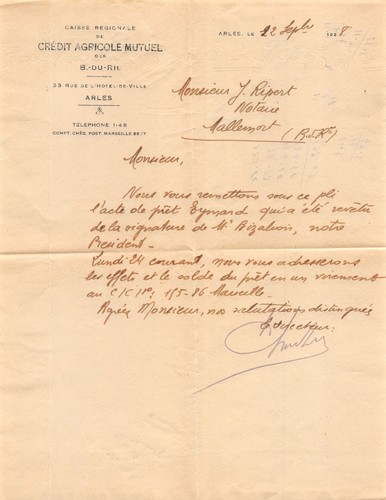 CAISSE REGIONALE
DE
CRÉDIT AGRICOLE MUTUEL
DES
B.-DU-RH.
33 RUE DE L'HOTEL-DE-VILLE
ARLES
TÉLÉPHONE 1-48
COMPT. CHÈQ. POST. MARSEILLE
ARLES, LE 22 Sept 1928
Monsieur J. Ripert
Notaire
Mallemort
(B.d.R.)
Monsieur,
Nous vous remettons sous ce pli
l'acte de prêt Eymard qui a été revêtu
de la signature de Mr notre
Président.
Lundi 24 courant, nous vous adresserons
les effets et le solde du prêt en un virement
au C/C No: 155-86 Marseille.
Agréez Monsieur, nos salutations distinguées
Le directeur: